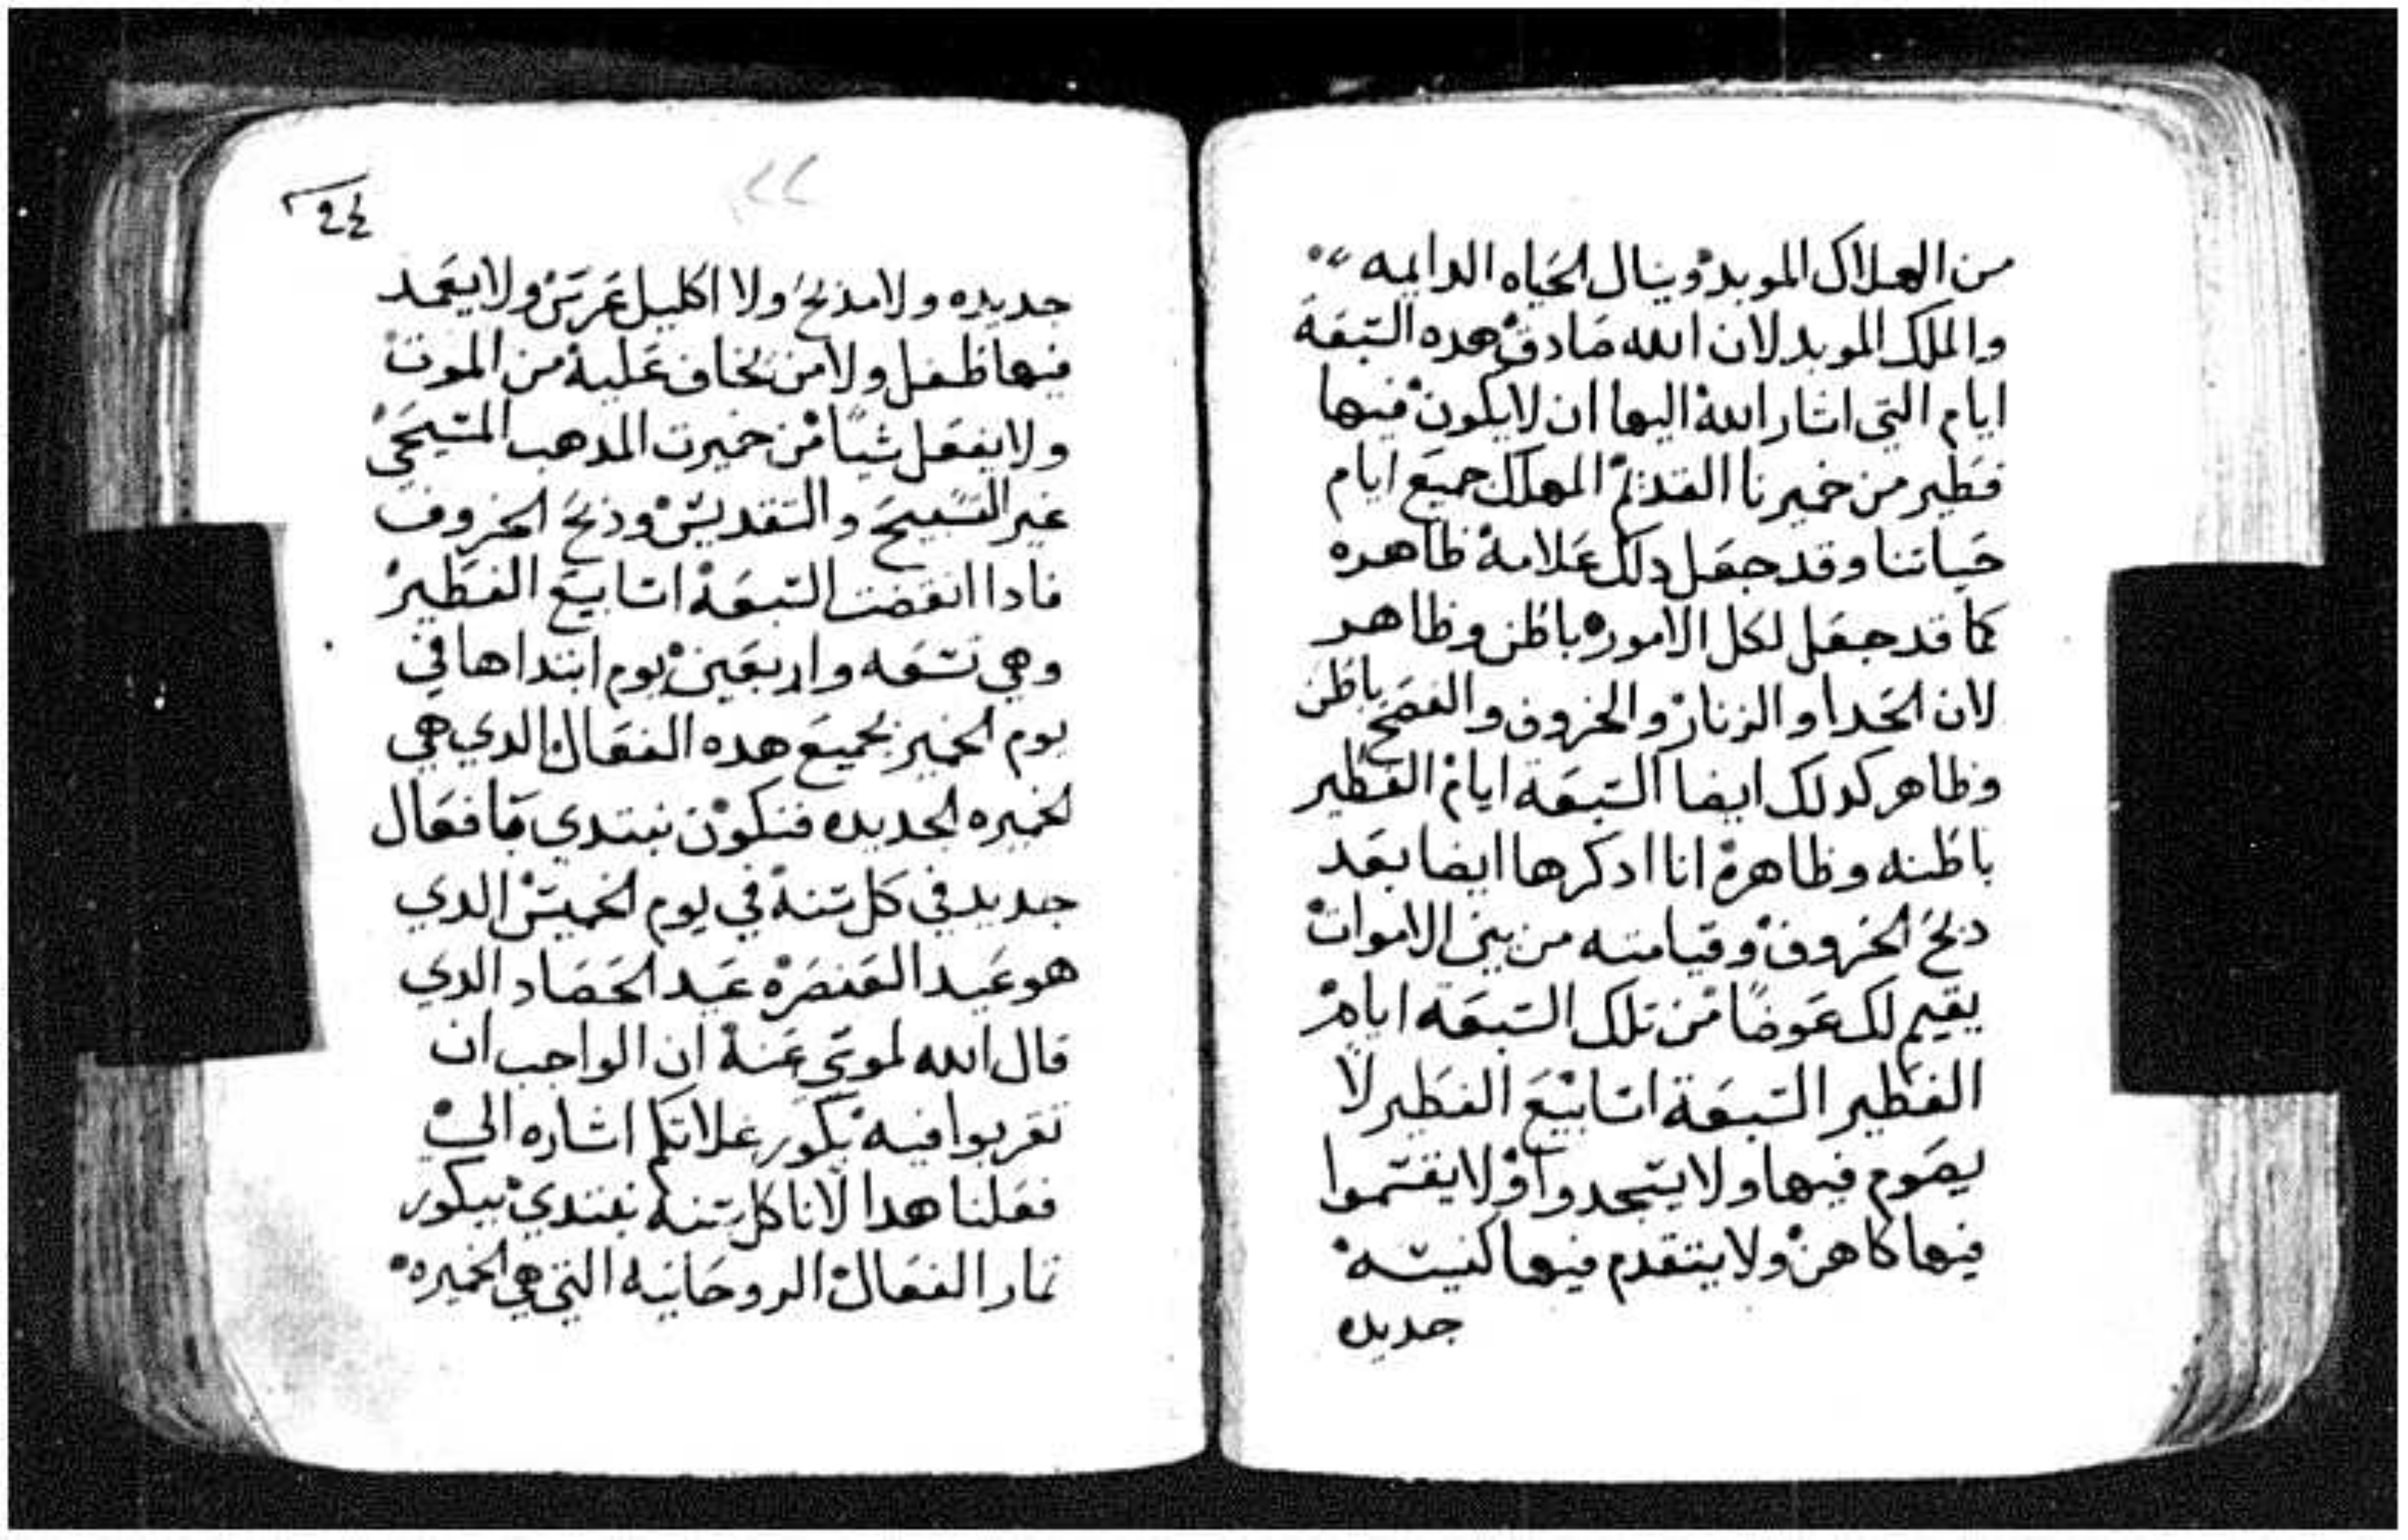 من الهلاك الموبد وينال الحياه الدايمه
والملك الموبد لان الله صادق هده السبعة
ايام التي اشار الله اليها ان لايكون فيها
فطير من خميرنا القديم المهلك جميع ايام
حياتنا وقد جعل دلك علامة ظاهره
كما قد جعل لكل الامور باطن وظاهر
لان الحدا والزنار والخروف والفصح باطن
وظاهر كدلك ايضا السبعة ايام الفطير
باطنه وظاهرة انا ادكرها ايضا بعد
دبح الخروف وقيامته من بين الاموات
يقيم لك عوضا من تلك السبعه ايام
الفطير السبعة اسابيع الفطير لا
يصوم فيها ولا يسجدوا ولا يقسموا
فيها كاهن ولا يتقدم فيها كنيسه
جديده
24
٢٤
جديده ولا مذبح ولا اكليل عرس ولا يعمد
فيها طفل ولا من يخاف علية من الموت
ولا يفعل شيا من خميرت المدهب المسيحي
غير التسبيح والتقديس وذبح الخروف
فادا انقضت السبعة اسابيع الفطير
وهي تسعه واربعين يوم ابتداها في
يوم الخمير بجميع هده الفعال الدي هي
الخميره الجديده فنكون نبتدي بافعال
جديد في كل سنة في يوم الخميس الدي
هو عيد العنصرة عيد الحصاد الدي
قال الله لموسي عنة ان الواجب ان
تقربوا فيه بكور غلاتكم اشاره الي
فعلنا هدا لانا كل سنه نبتدي ببكور
تمار الفعال الروحانيه التي هي الخميره